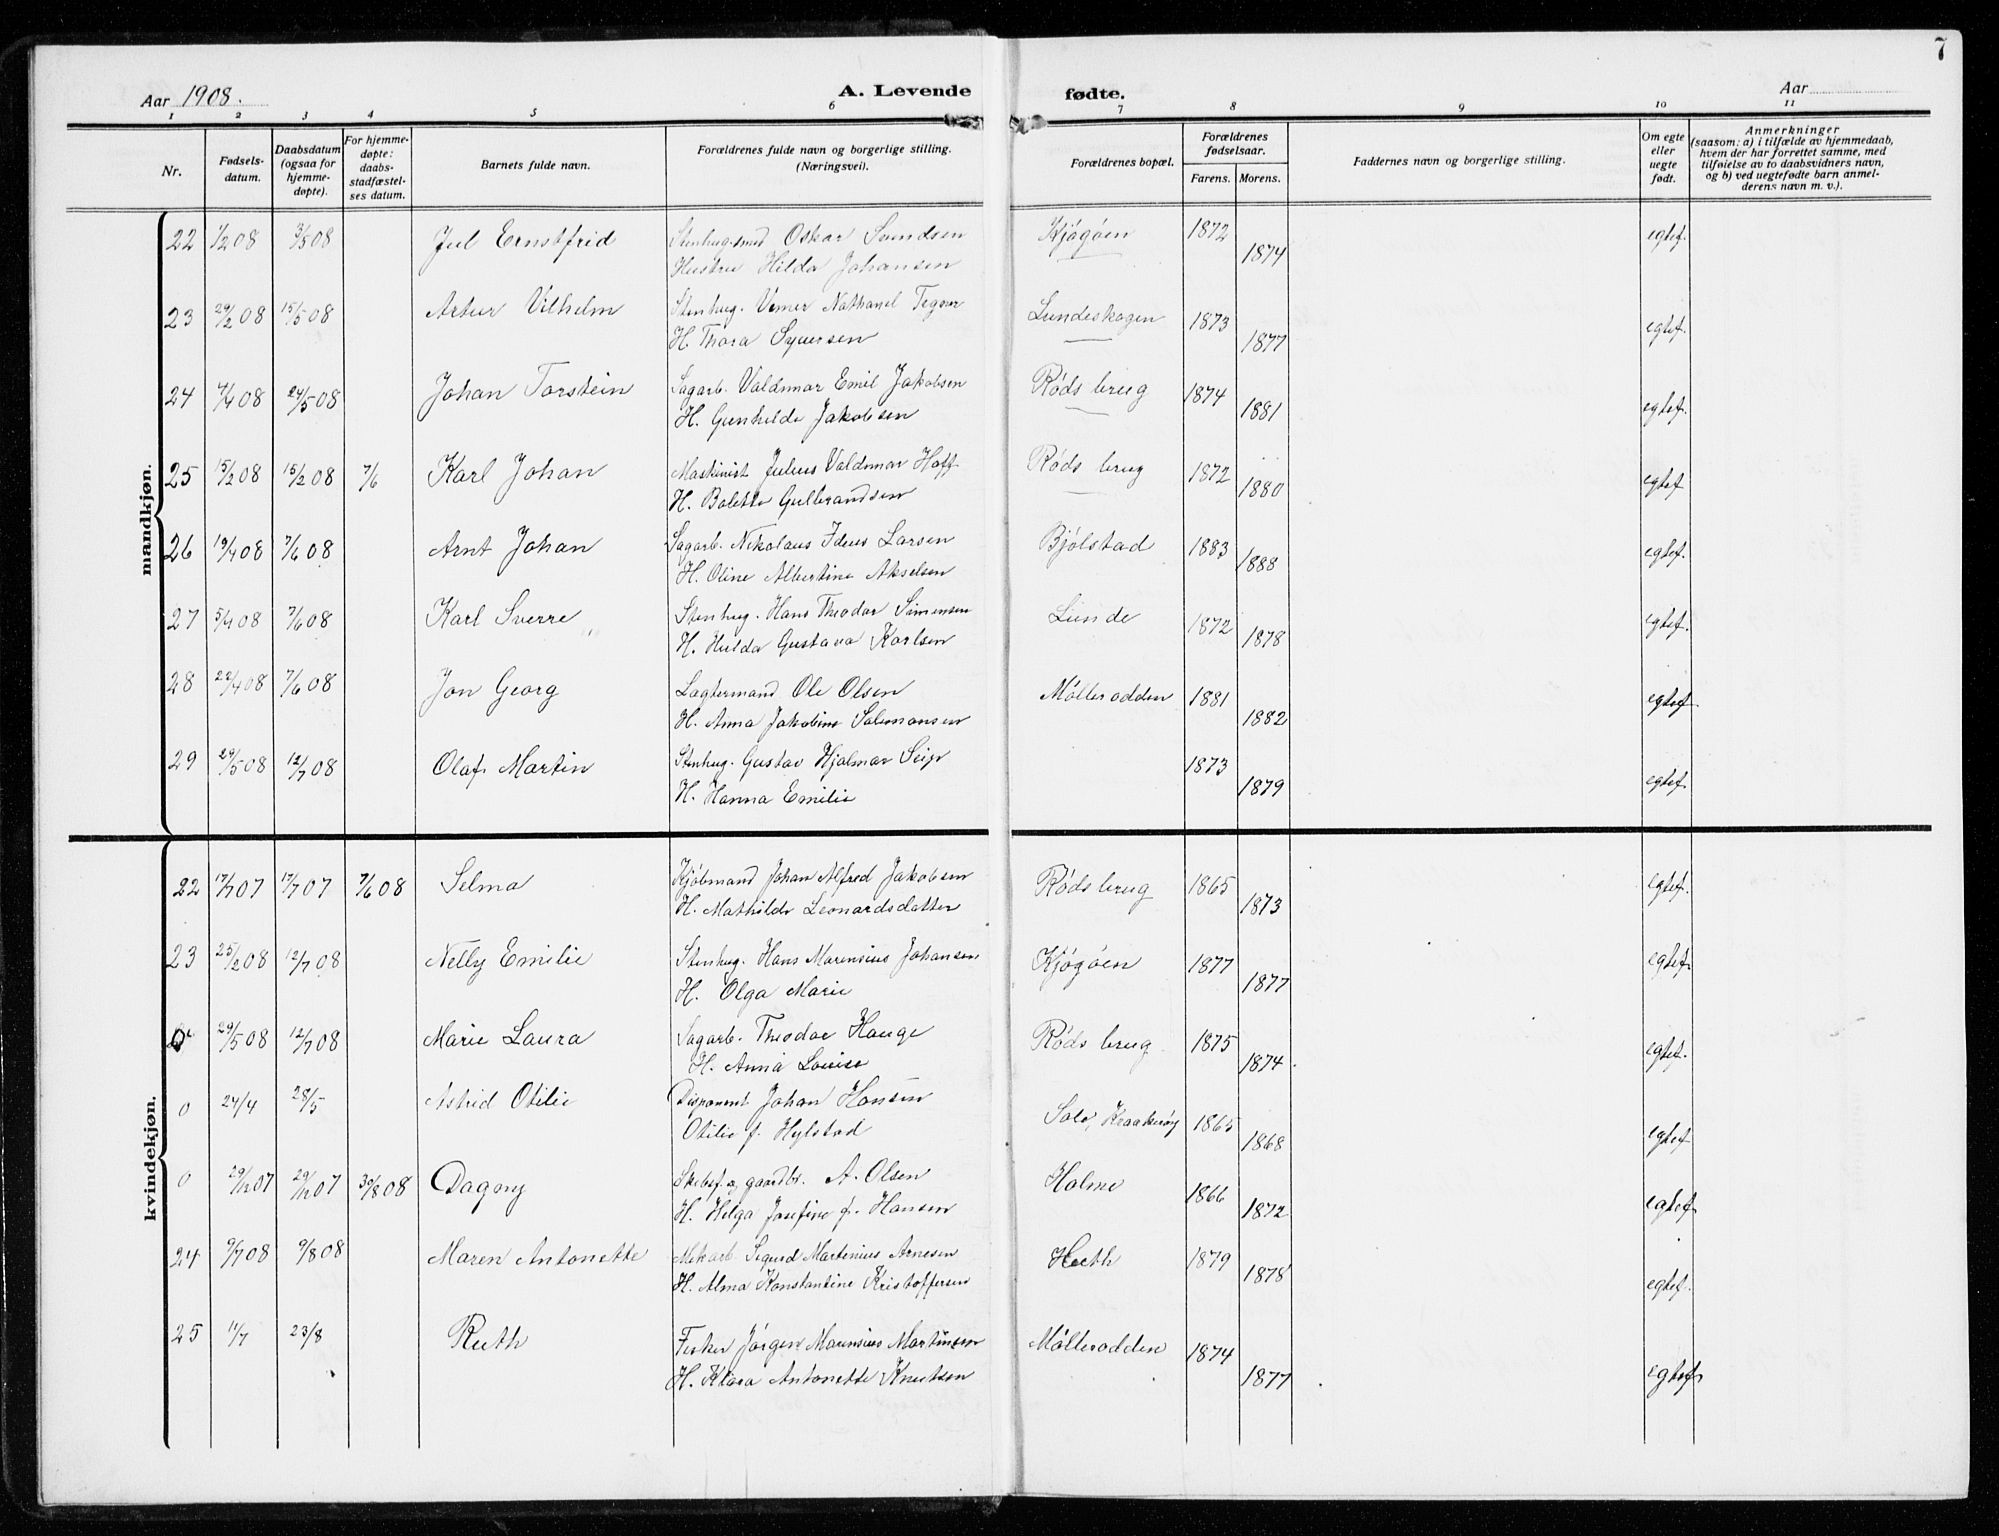 7
Aar 1908. A. Levende fødte. Aar
1 2 3 4 5 6 7 8 9 10 11
Nr. Fødsels-datum. Daabsdatum (ogsaa for hjemme-døpte). For hjemme-døpte: daabs-stadfæstel-ses datum. Barnets fulde navn. Forældrenes fulde navn og borgerlige stilling. (Næringsvei). Forældrenes bopæl. Forældrenes fødselsaar. Farens. Morens. Faddernes navn og borgerlige stilling. Om egte eller uegte født. Anmerkninger (saasom: a) i tilfælde av hjemmedaab, hvem der har forrettet samme, med tilføielse av to daabsvidners navn, og b) ved uegtefødte barn anmel-derens navn m. v.).
mandkjøn.
22 1/2 08 3/5 08 Jul Ernstfrid Stenhug.smed Oskar Svendsen Kjøgøen 1872 egtef.
Hustru Hilda Johansen 1874
23 29/2 08 15/5 08 Artur Vilhelm Stenhug. Verner Nathanel Tegner Lundeskogen 1873 egtef.
H. Thora Syversen 1877
24 7/4 08 24/5 08 Johan Torstein Sagarb. Valdemar Emil Jakobsen Røds brug 1874 egtef.
H. Gunhilda Jakobsen 1881
25 15/2 08 15/2 08 7/6 Karl Johan Maskinist Julius Valdemar Hoff Røds brug 1872 egtef
H. Bolette Gulbrandsen 1880
26 19/4 08 7/6 08 Arnt Johan Sagarb. Nikolaus Ideus Larsen Bjølstad 1883 egtef.
H. Oline Albertine Akselsen 1888
27 5/4 08 7/6 08 Karl Sverre Stenhug. Hans Theodor Simensen Lunde 1872 egtef.
H. Hulda Gustava Karlsen 1878
28 22/4 08 7/6 08 Jon Georg Lagtermand Ole Olsen Mølleradden 1881 egtef.
H. Anna Jakobine Salomonsen 1882
29 29/5 08 12/7 08 Olaf Martin Stenhug. Gustav Hjalmar Seip 1873 egtef.
H. Hanna Emilie 1879
kvindekjøn.
22 17/7 07 17/7 07 7/6 08 Selma Kjøbmand Johan Alfred Jakobsen Røds brug 1865 egtef.
H. Mathilde Leonardsdatter 1873
23 25/2 08 12/7 08 Nelly Emilie Stenhug. Hans Marensius Johansen Kjøgøen 1877 egtef.
H. Olga Marie 1877
29/5 08 12/7 08 Marie Laura Sagarb. Theodor Hauge Røds brug 1875 egtef.
H. Anna Louise 1874
0 24/4 28/5 Astrid Otilie Disponent Johan Hansen Solv, Kraakerøy 1865 egtef
Otilie f. Hylstad 1868
0 29/12 07 29/12 07 30/8 08 Dagny Skibsf. og gaardbr. A. Olsen Holme 1866 egtef
H. Helga Josefine f. Hansen 1872
24 9/7 08 9/8 08 Maren Antonette Mekarb Sigurd Martinius Arnesen Huth 1879 egtef.
H. Alma Konstantine Kristoffersen 1878
25 11/7 23/8 Ruth Fisker Jørgen Marensius Martinsen Mølleradden 1874 egtef.
H. Klara Antonette Knutsen 1877